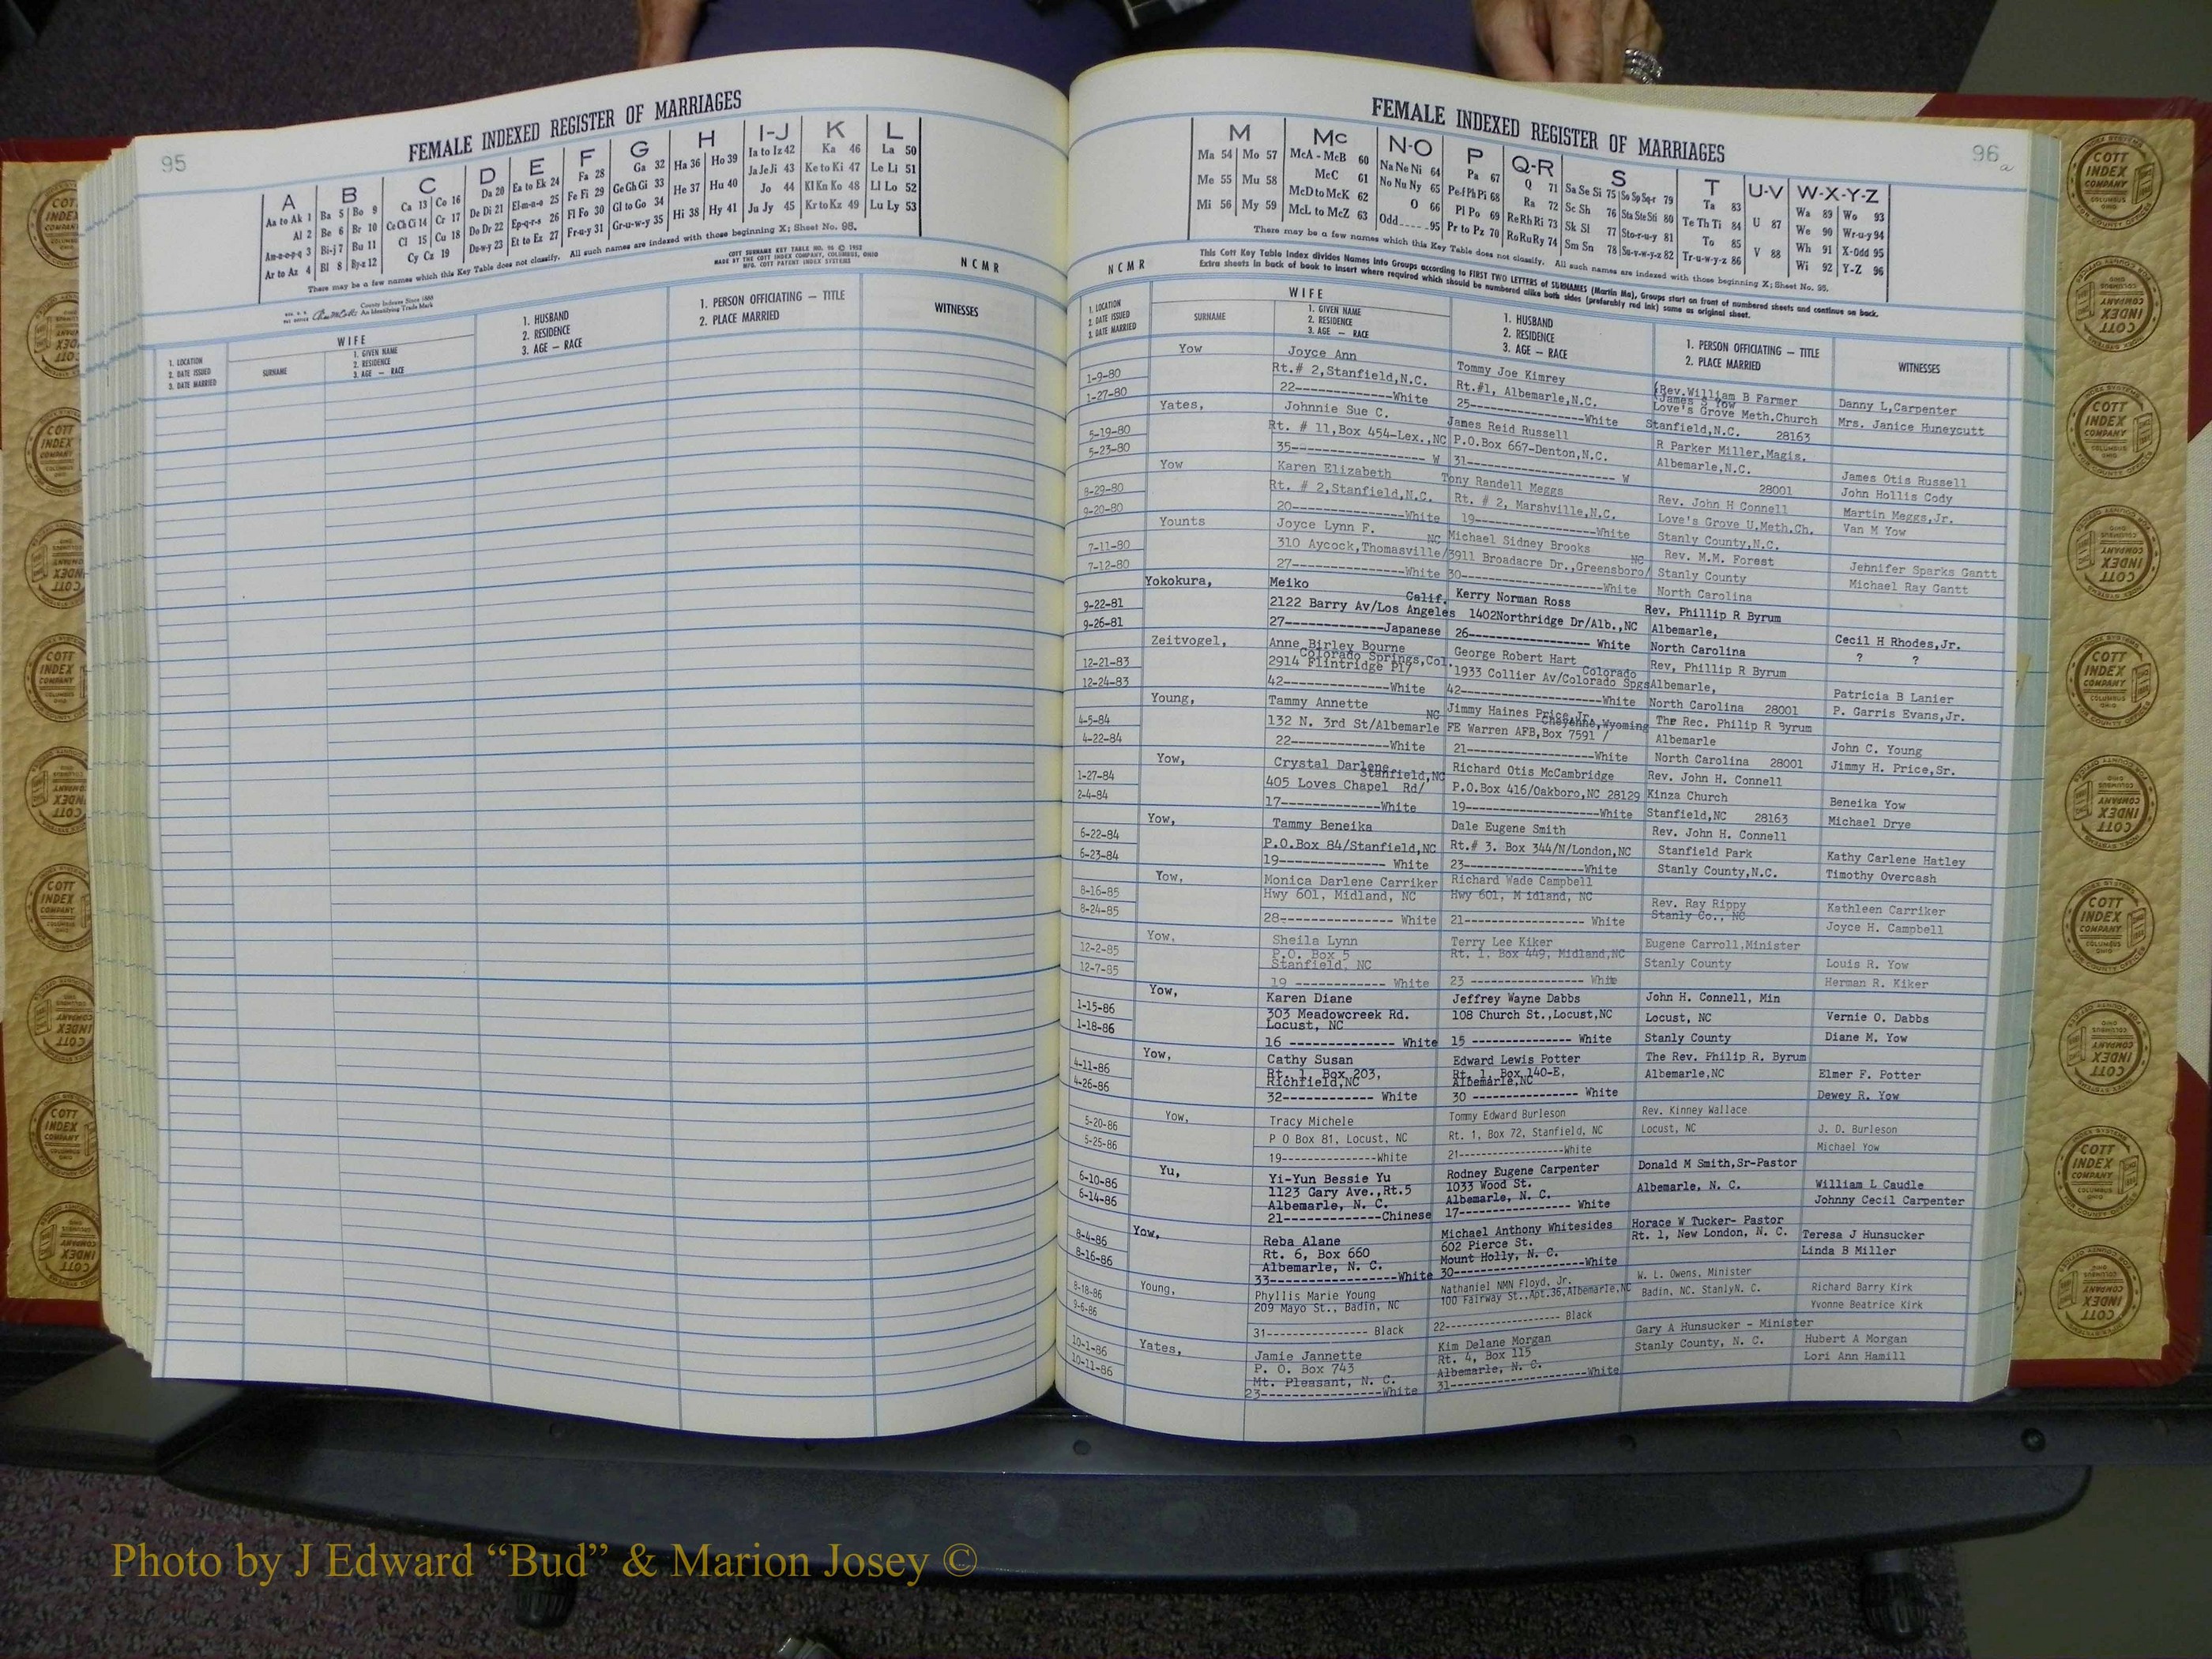 95
FEMALE INDEXED REGISTER OF MARRIAGES
A B C D E F G H I-J K L
Aa to Ak 1 Ba 5 Bo 9 Ca 13 Co 16 Da 20 Ea to Ek 24 Fa 28 Ga 32 Ha 36 Ho 39 Ia to Iz 42 Ka 46 La 50
Al 2 Be 6 Br 10 Ce Ch Ci 14 Cr 17 De Di 21 El-m-n-o 25 Fe Fi 29 Ge Gh Gi 33 He 37 Hu 40 Ja Je Ji 43 Ke to Ki 47 Le Li 51
Am-n-o-p-q 3 Bi-j 7 Bu 11 Cl 15 Cu 18 Do Dr 22 Ep-q-r-s 26 Fl Fo 30 Gl to Go 34 Hi 38 Hy 41 Jo 44 Kl Kn Ko 48 Ll Lo 52
Ar to Az 4 Bl 8 By-z 12 Cy Cz 19 Du-w-y 23 Et to Ez 27 Fr-u-y 31 Gr-u-w-y 35 Ju Jy 45 Kr to Kz 49 Lu Ly 53
There may be a few names which this Key Table does not classify. All such names are indexed with those beginning X; Sheet No. 95.
COTT SURNAME KEY TABLE NO. 96 © 1952
MADE BY THE COTT INDEX COMPANY, COLUMBUS, OHIO
MFG. COTT PATENT INDEX SYSTEMS
NCMR
County Indexes Since 1888
An Identifying Trade Mark
1. LOCATION
2. DATE ISSUED
3. DATE MARRIED
WIFE
SURNAME
1. GIVEN NAME
2. RESIDENCE
3. AGE — RACE
1. HUSBAND
2. RESIDENCE
3. AGE — RACE
1. PERSON OFFICIATING — TITLE
2. PLACE MARRIED
WITNESSES
96
a
FEMALE INDEXED REGISTER OF MARRIAGES
M Mc N-O P Q-R S T U-V W-X-Y-Z
Ma 54 Mo 57 McA - McB 60 Na Ne Ni 64 Pa 67 Q 71 Sa Se Si 75 So Sp Sq-r 79 Ta 83 U 87 Wa 89 Wo 93
Me 55 Mu 58 McC 61 No Nu Ny 65 Pe-f Ph Pi 68 Ra 72 Sc Sh 76 Sta Ste Sti 80 Te Th Ti 84 V 88 We 90 Wr-u-y 94
Mi 56 My 59 McD to McK 62 O 66 Pl Po 69 Re Rh Ri 73 Sk Sl 77 Sto-r-u-y 81 To 85 Wh 91 X-Odd 95
McL to McZ 63 Odd 95 Pr to Pz 70 Ro Ru Ry 74 Sm Sn 78 Su-v-w-y-z 82 Tr-u-w-y-z 86 Wi 92 Y-Z 96
There may be a few names which this Key Table does not classify. All such names are indexed with those beginning X; Sheet No. 95.
This Cott Key Table Index divides Names into Groups according to FIRST TWO LETTERS of SURNAMES (Martin Ma), Groups start on front of numbered sheets and continue on back.
Extra sheets in back of book to insert where required which should be numbered alike both sides (preferably red ink) same as original sheet.
NCMR
1. LOCATION
2. DATE ISSUED
3. DATE MARRIED
WIFE
SURNAME
1. GIVEN NAME
2. RESIDENCE
3. AGE — RACE
1. HUSBAND
2. RESIDENCE
3. AGE — RACE
1. PERSON OFFICIATING — TITLE
2. PLACE MARRIED
WITNESSES
Yow Joyce Ann Tommy Joe Kimrey (Rev.William B Farmer
(James S Yow
1-9-80 Rt.# 2,Stanfield,N.C. Rt.#1, Albemarle,N.C. Love's Grove Meth.Church Danny L,Carpenter
1-27-80 22------------White 25---------------White Stanfield,N.C. 28163 Mrs. Janice Huneycutt
Yates, Johnnie Sue C. James Reid Russell R Parker Miller,Magis.
5-19-80 Rt. # 11,Box 454-Lex.,NC P.O.Box 667-Denton,N.C. Albemarle,N.C. James Otis Russell
5-23-80 35---------------- W 31---------------- W 28001 John Hollis Cody
Yow Karen Elizabeth Tony Randell Meggs Rev. John H Connell
8-29-80 Rt. # 2,Stanfield,N.C. Rt. # 2, Marshville,N.C. Love's Grove U.Meth.Ch. Martin Meggs,Jr.
9-20-80 20---------------White 19---------------White Stanly County,N.C. Van M Yow
Younts Joyce Lynn F. Michael Sidney Brooks Rev. M.M. Forest
7-11-80 310 Aycock,Thomasville/NC 3911 Broadacre Dr.,Greensboro/NC Stanly County Jehnifer Sparks Gantt
7-12-80 27---------------White 30---------------White North Carolina Michael Ray Gantt
Yokokura, Meiko Kerry Norman Ross Rev. Phillip R Byrum
9-22-81 2122 Barry Av/Los Angeles Calif. 1402Northridge Dr/Alb.,NC Albemarle, Cecil H Rhodes,Jr.
9-26-81 27-------------Japanese 26---------------- White North Carolina ? ?
Zeitvogel, Anne Birley Bourne George Robert Hart Rev, Phillip R Byrum
12-21-83 2914 Flintridge Pl7 Colorado Springs,Col. 1933 Collier Av/Colorado Spgs Colorado Albemarle, Patricia B Lanier
12-24-83 42-------------White 42---------------White North Carolina 28001 P. Garris Evans,Jr.
Young, Tammy Annette Jimmy Haines Price,Jr. The Rec. Philip R Byrum
4-5-84 132 N. 3rd St/Albemarle NC FE Warren AFB,Box 7591 / Cheyenne,Wyoming Albemarle John C. Young
4-22-84 22-------------White 21---------------White North Carolina 28001 Jimmy H. Price,Sr.
Yow, Crystal Darlene Richard Otis McCambridge Rev. John H. Connell
1-27-84 405 Loves Chapel Rd/ Stanfield,NC P.O.Box 416/Oakboro,NC 28129 Kinza Church Beneika Yow
2-4-84 17-------------White 19---------------White Stanfield,NC 28163 Michael Drye
Yow, Tammy Beneika Dale Eugene Smith Rev. John H. Connell
6-22-84 P.O.Box 84/Stanfield,NC Rt.# 3. Box 344/N/London,NC Stanfield Park Kathy Carlene Hatley
6-23-84 19--------------- White 23---------------White Stanly County,N.C. Timothy Overcash
Yow, Monica Darlene Carriker Richard Wade Campbell Rev. Ray Rippy
8-16-85 Hwy 601, Midland, NC Hwy 601, M idland, NC Stanly Co., NC Kathleen Carriker
8-24-85 28--------------- White 21--------------- White Joyce H. Campbell
Yow, Sheila Lynn Terry Lee Kiker Eugene Carroll,Minister
12-2-85 P.O. Box 5 Rt. 1, Box 449, Midland,NC Stanly County Louis R. Yow
12-7-85 Stanfield, NC Herman R. Kiker
19 ------------ White 23 --------------- White
Yow, Karen Diane Jeffrey Wayne Dabbs John H. Connell, Min
1-15-86 303 Meadowcreek Rd. 108 Church St.,Locust,NC Locust, NC Vernie O. Dabbs
1-18-86 Locust, NC Stanly County Diane M. Yow
16 -------------- White 15 -------------- White
Yow, Cathy Susan Edward Lewis Potter The Rev. Philip R. Byrum
4-11-86 Rt. 1, Box 203, Rt. 1, Box 140-E, Albemarle,NC Elmer F. Potter
4-26-86 Richfield,NC Albemarle,NC Dewey R. Yow
32------------ White 30 --------------- White
Yow, Tracy Michele Tommy Edward Burleson Rev. Kinney Wallace
5-20-86 P O Box 81, Locust, NC Rt. 1, Box 72, Stanfield, NC Locust, NC J. D. Burleson
5-25-86 19---------------White 21------------------White Michael Yow
Yu, Yi-Yun Bessie Yu Rodney Eugene Carpenter Donald M Smith,Sr-Pastor
6-10-86 1123 Gary Ave.,Rt.5 1033 Wood St. Albemarle, N. C. William L Caudle
6-14-86 Albemarle, N. C. Albemarle, N. C. Johnny Cecil Carpenter
21-------------Chinese 17---------------- White
Yow, Reba Alane Michael Anthony Whitesides Horace W Tucker- Pastor
8-4-86 Rt. 6, Box 660 602 Pierce St. Rt. 1, New London, N. C. Teresa J Hunsucker
8-16-86 Albemarle, N. C. Mount Holly, N. C. Linda B Miller
33-----------------White 30-----------------White
Young, Phyllis Marie Young Nathaniel NMN Floyd, Jr. W. L. Owens, Minister
8-18-86 209 Mayo St., Badin, NC 100 Fairway St.,Apt.36,Albemarle,NC Badin, NC. StanlyN. C. Richard Barry Kirk
9-6-86 31---------------- Black 22------------------ Black Yvonne Beatrice Kirk
Yates, Jamie Jannette Kim Delane Morgan Gary A Hunsucker - Minister
10-1-86 P. O. Box 743 Rt. 4, Box 115 Stanly County, N. C. Hubert A Morgan
10-11-86 Mt. Pleasant, N. C. Albemarle, N. C. Lori Ann Hamill
23----------------White 31------------------White
COTT INDEX COMPANY
COLUMBUS OHIO
Photo by J Edward “Bud” & Marion Josey ©